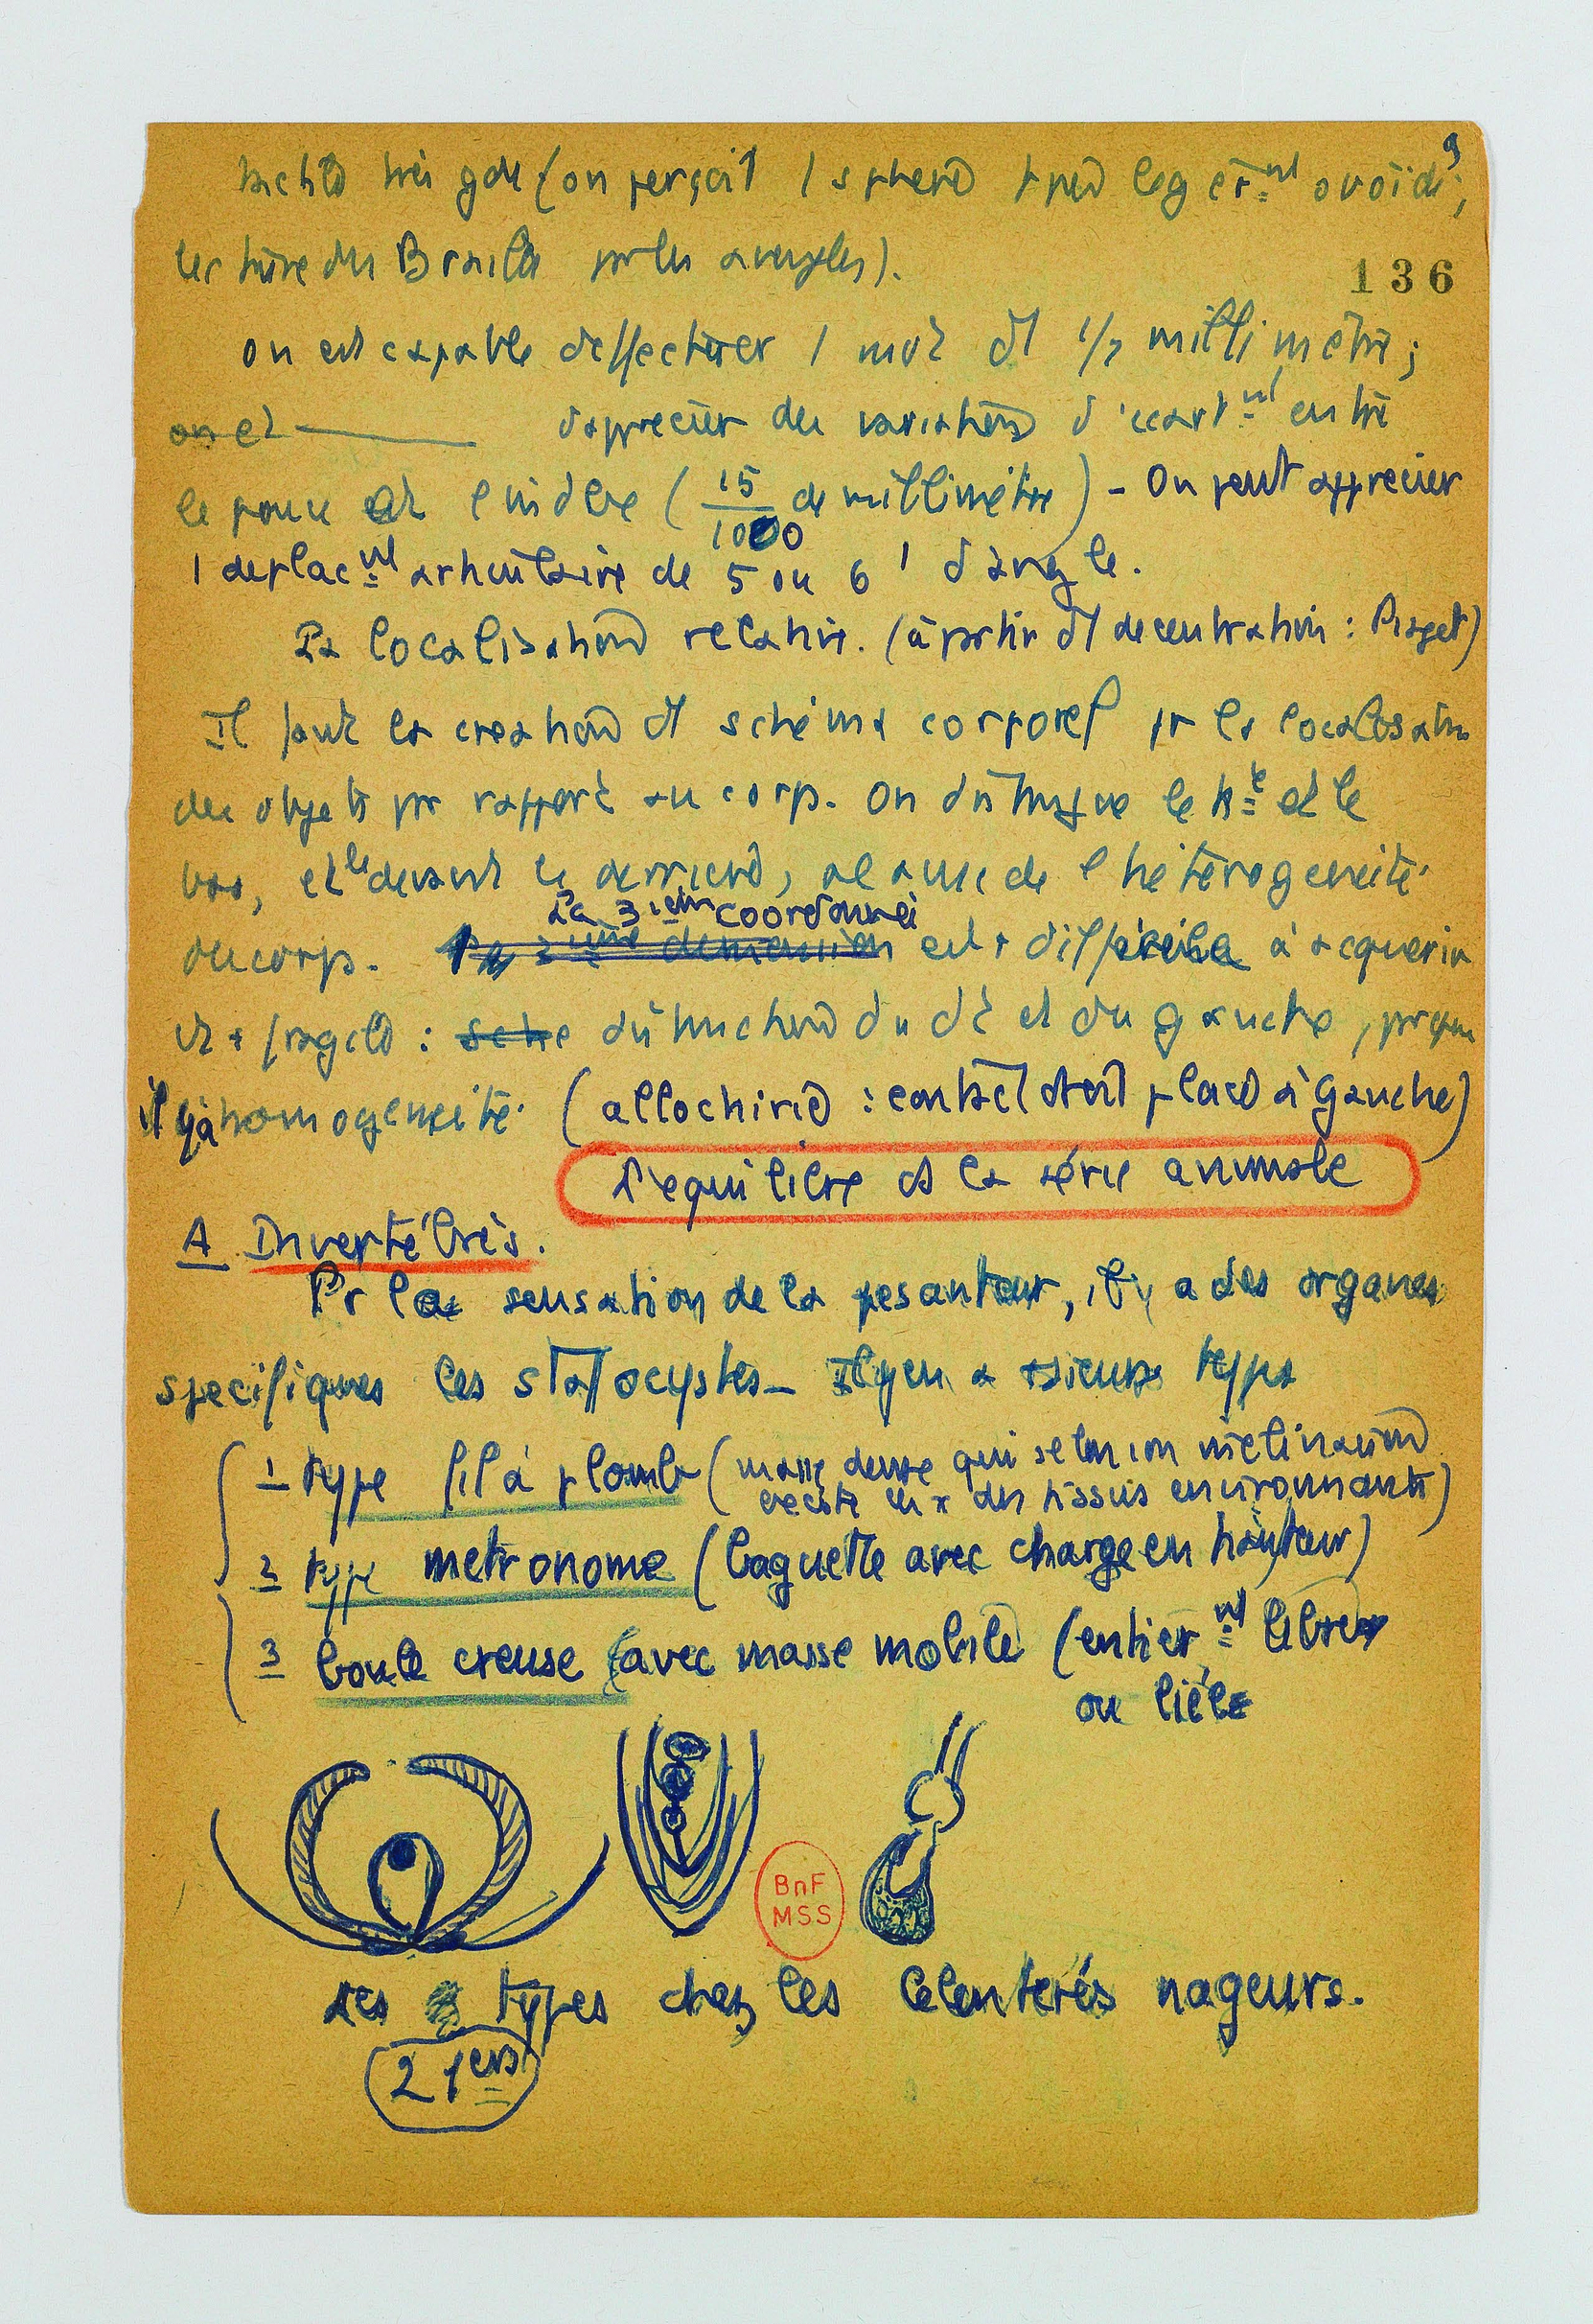 9
tactile très gde (on perçoit 1 sphère legèrmt ovoïde,
lecture du Braille pr les aveugles).
136
on est capable d'effectuer 1 mvt d 1/2 millimètre ;
on et d'apprecier des variations d'ecartmt entre
le pouce et l'index (15/1000 de millimètre) - On peut apprecier
1 deplacmt articulaire de 5 ou 6 ' d'angle.
La localisation relative. (à partir d decentration : Piaget)
Il faut la creation d schéma corporel pr la localisation
des objets pr rapport au corps. On distingue le ht et le
bas, et le devant le derriere, a cause de l'hétérogeneité
du corps. La 3ième dimension est + difficile à acquerir
La 3ième coordonnée
et + fragile : sche distinction du dt et du gauche, parque
il y a homogeneité. (allochirie : contact droit placé à gauche)
L'equilibre ds la série animale
A Invertébrés.
Pr la sensation de la pesanteur, il y a des organes
specifiques les statocystes - Il y en a types
1 type fil à plomb (masse dense qui selon son inclinaison
excite les x des tissus environnants)
2 type metronome (baguette avec charge en hauteur)
3 boule creuse (avec masse mobile (entiermt libre
ou liée
BnF
MSS
Les types chez les Celenterés nageurs.
2 1ers